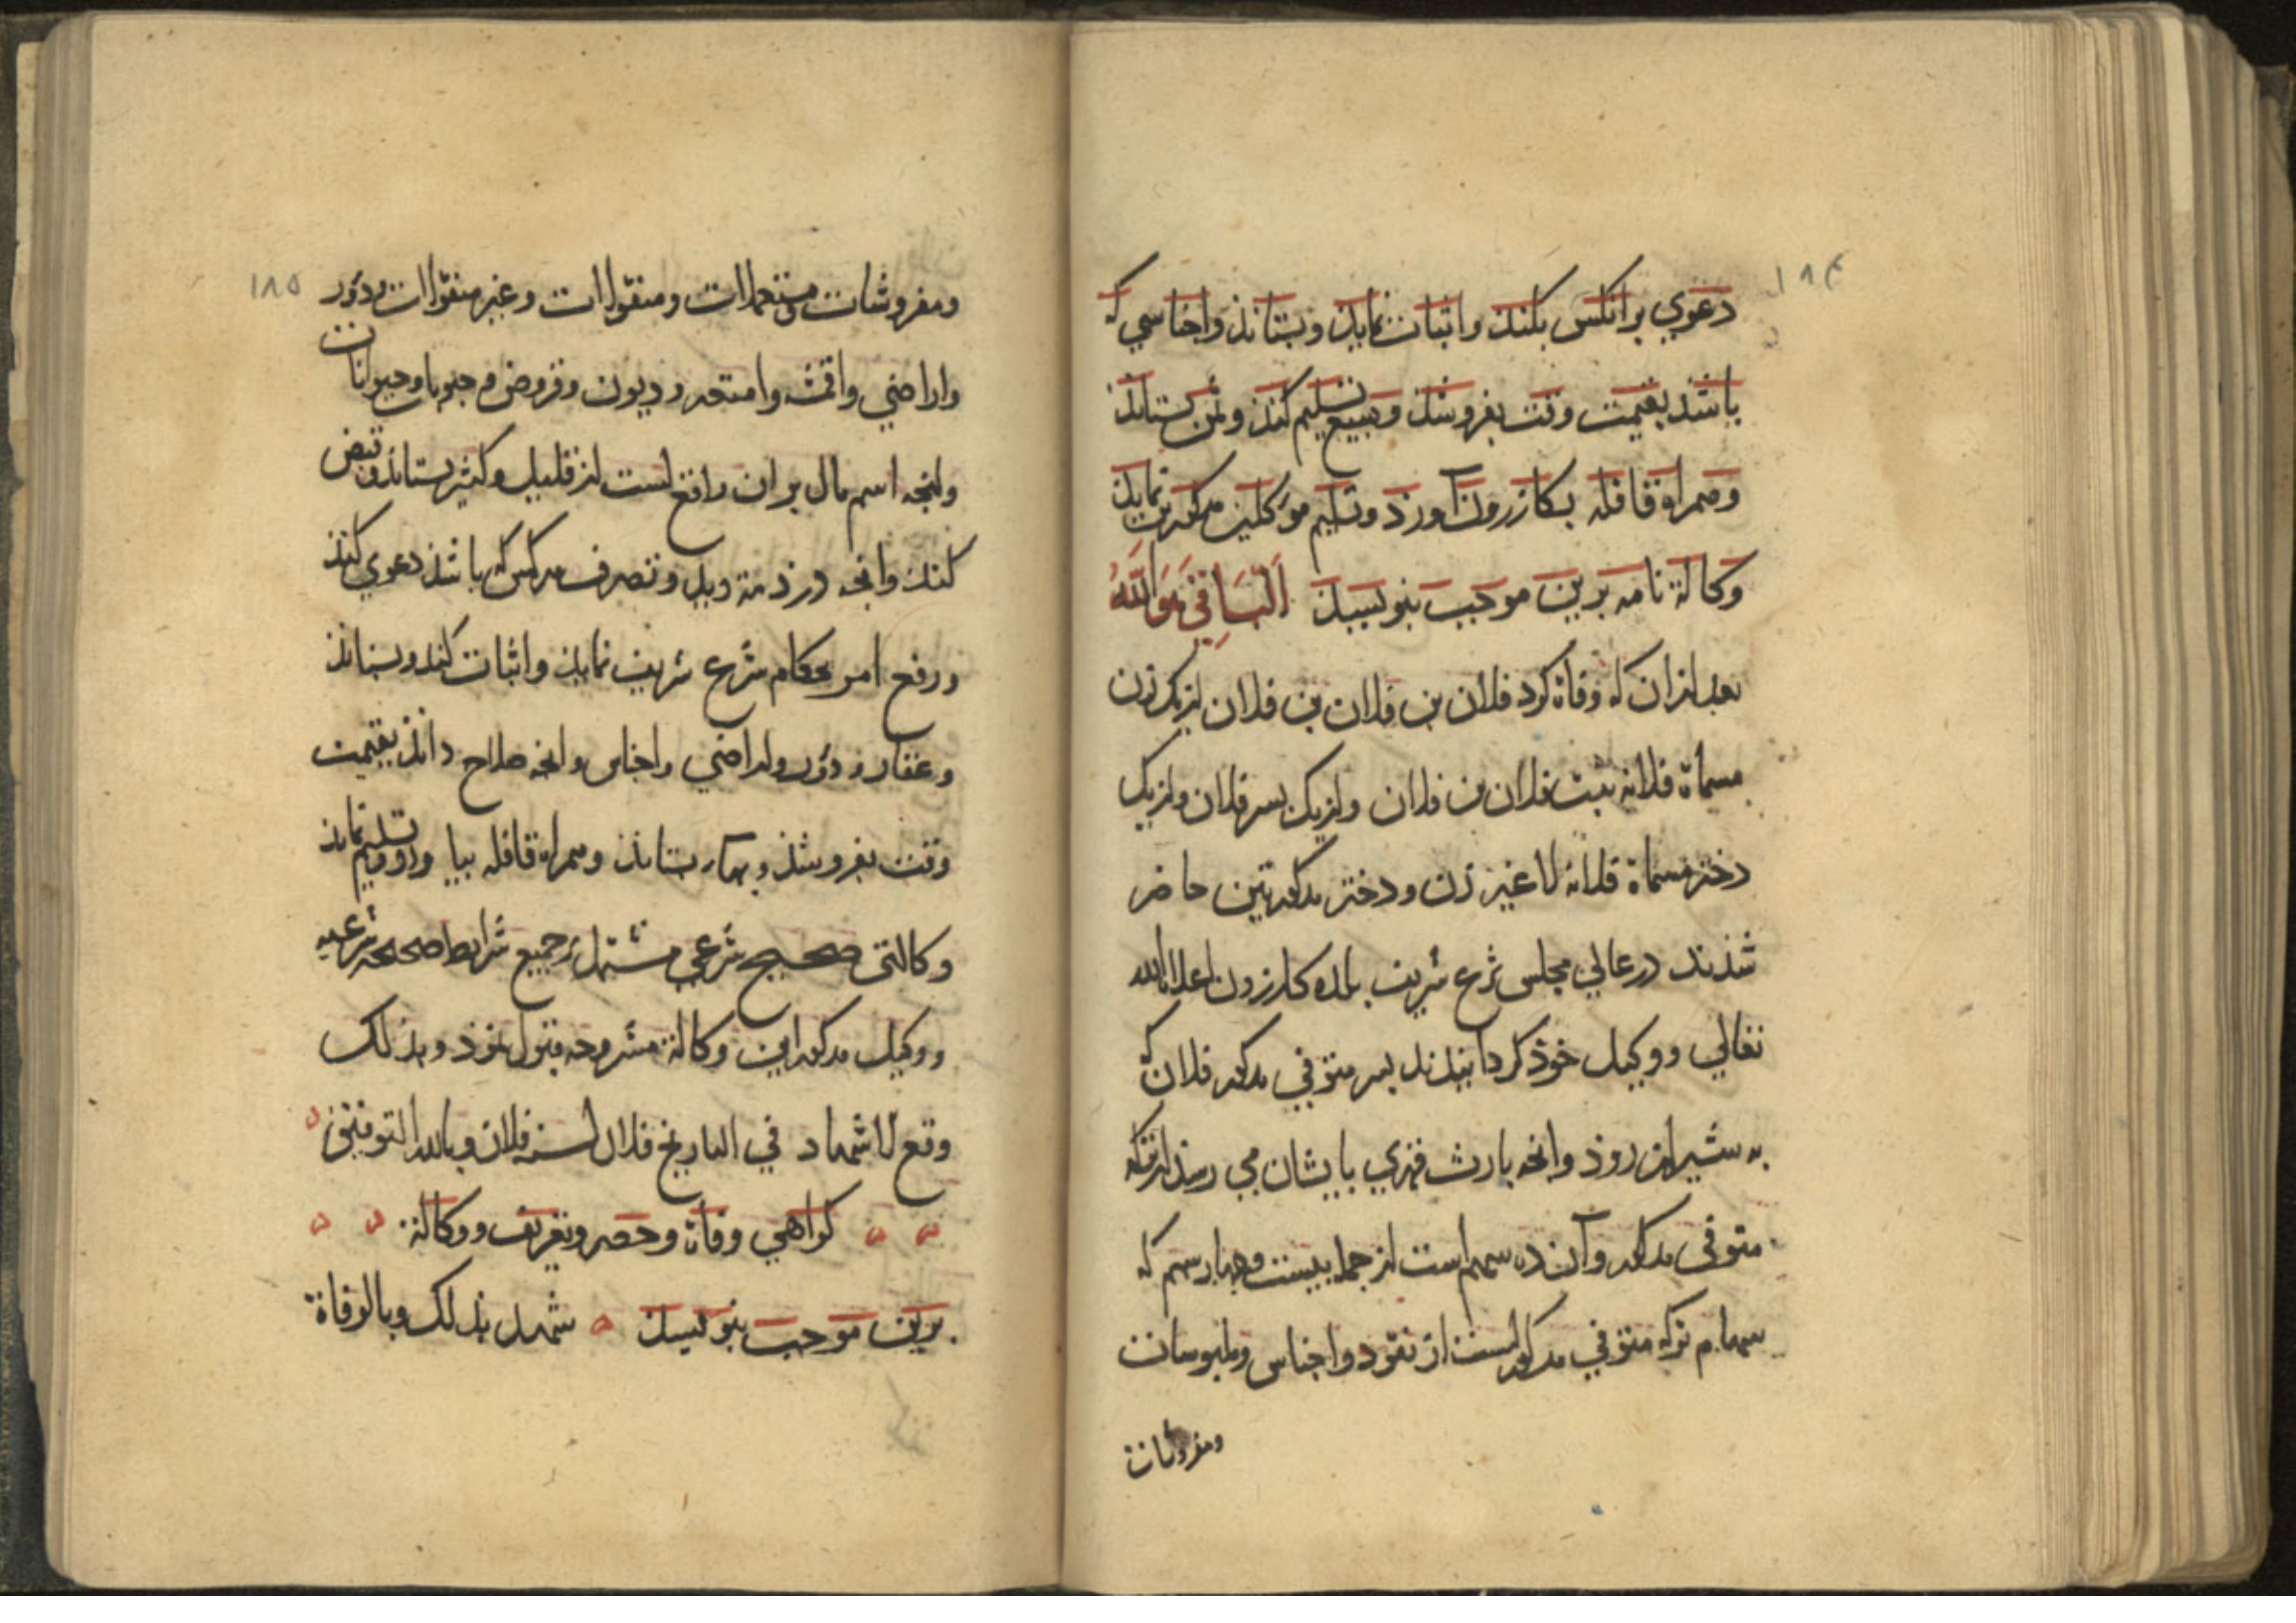 ۱۸۴
دعوي برانكس بكند واثبات نمايد وبستاند واجناسي كه
باشد بقيمت وقت بفروشد ومبيع تسليم كند وثمن بستاند
وهمراه قافله بكازرون آورد وتسليم موكلين مذكورين نمايد
وكالة نامه برين موجب بنويسد اَلْبَاقِيْ هُوَ اللّٰهُ
بعد ازان كه وفاة كرد فلان بن فلان بن فلان از يك زن
مسماة فلانه بنت فلان بن فلان واز يك پسر فلان واز يك
دختر مسماة فلانه لا غير زن ودختر مذكورتين حاضر
شدند در عالي مجلس شرع شريف بلده كازرون اعلاها الله
تعالي ووكيل خوذ كردانيدند پسر متوفي مذكور فلان كه
به شيراز روذ وانچه بارث فهري بايشان مي رسد از تركه
متوفى مذكور وآن ده سهم است از جمله بيست وچهار سهم كه
سهام تركه متوفي مذكورست از نقود واجناس وملبوسات
ومفروشات
۱۸۵
ومفروشات ومستعملات ومنقولات وغير منقولات ودور
واراضي واقمشه وامتعه وديون وقروض وحبوبات وحيوانات
وانچه اسم مال بران واقع است از قليل وكثير بستاند وقبض
كند وانچه در ذمة ويد وتصرف هر كس كه باشد دعوي كند
ورفع امر بحكام شرع شريف نمايد واثبات كند وبستاند
وعقار ودور واراضي واجناس وانچه صلاح داند بقيمت
وقت بفروشد وبها بستاند وهمراه قافله بياورد وتسليم نمايد
وكالتى صحيح شرعي مشتمل بر جميع شرايط صحه شرعيه
ووكيل مذكور اين وكالة مشروحه قبول نموذ وبذلك
وقع الاشهاد في التاريخ فلان لسنه فلان وبالله التوفيق
كواهي وفاة وحصر وتعريف ووكالة
برين موجب بنويسد شهد بذلك وبالوفاة